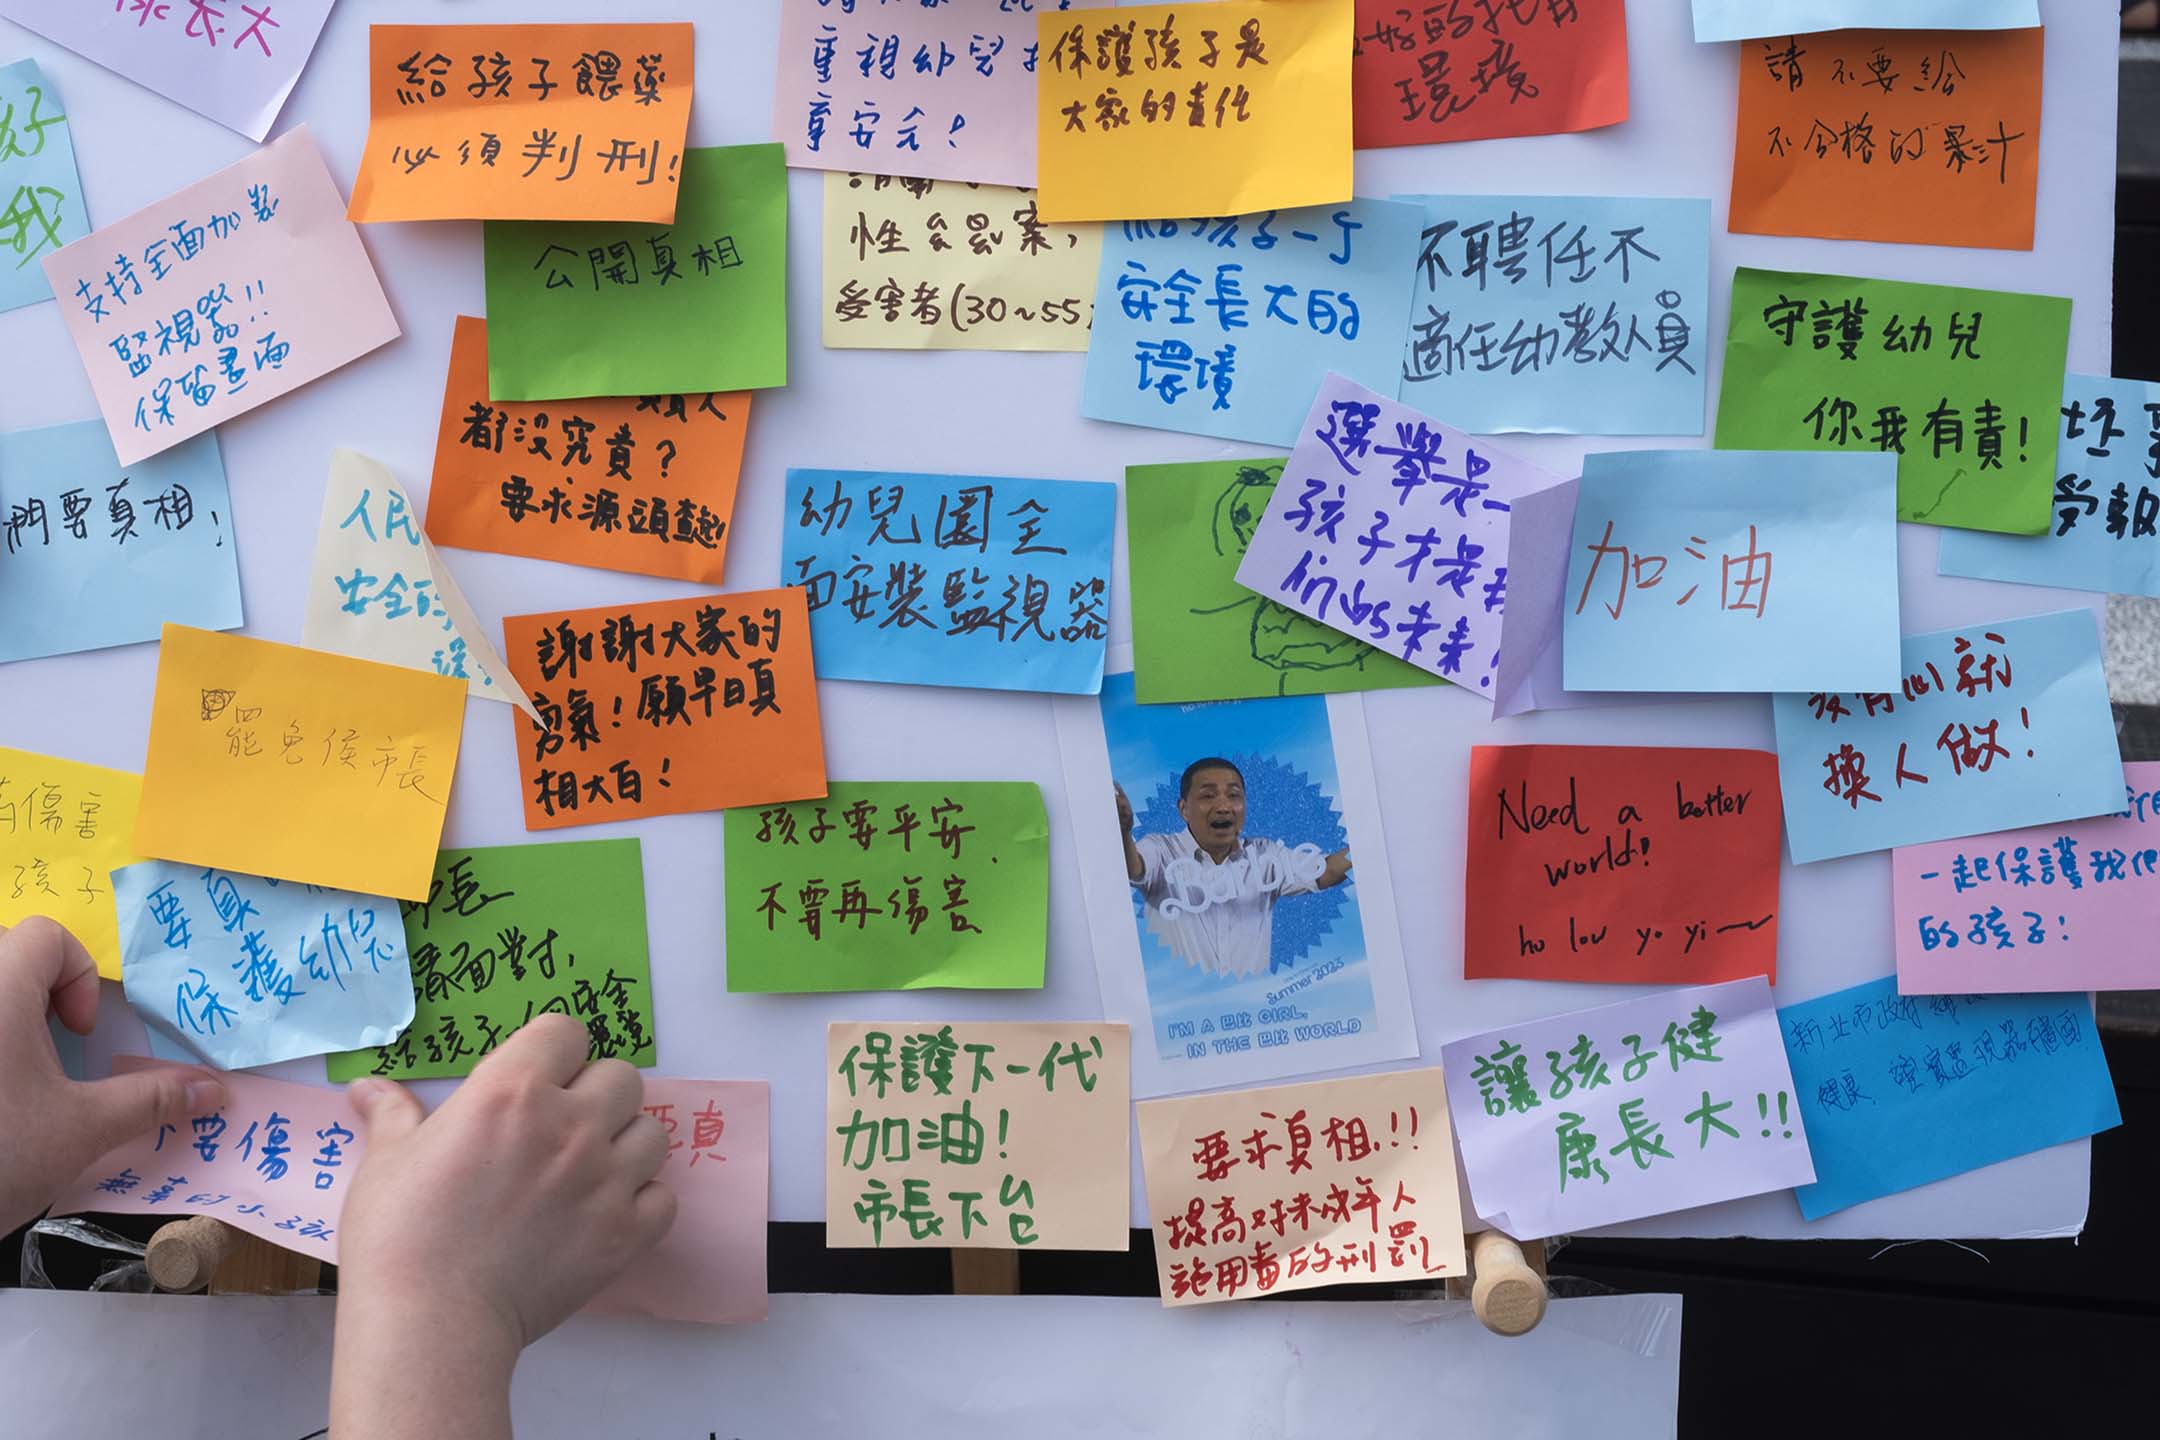 長大
給孩子餵藥
必須判刑!
重視幼兒
安全!
保護孩子是
大家的責任
環境
請不要給
不合格的果汁
我
支持全面加裝
監視器!!
保留畫面
公開真相
性
案,
受害者(30~55
給孩子一个
安全長大的
環境
不聘任不
適任幼教人員
守護幼兒
你我有責!
都沒究責?
要求源頭查起!
們要真相!
人民
安全的
幼兒園全
面安裝監視器
選舉是一
孩子才是我
們的未来!
加油
受報
謝謝大家的
勇氣!願早日真
相大白!
罷免侯市長
傷害
孩子
孩子要平安、
不要再傷害
Barbie
Summer 2023
I'M A 巴比 GIRL,
IN THE 巴比 WORLD
Need a better
world!
ho lou yo yi~
沒有心就
換人做!
一起保護我們
的孩子!
要真
保護幼兒
市長
請面對,
給孩子一個安全
環境
要傷害
無辜的小孩
要真
保護下一代
加油!
市長下台
要求真相!!
提高对未成年人
施用毒的刑罰
讓孩子健
康長大!!
新北市政府
健康,